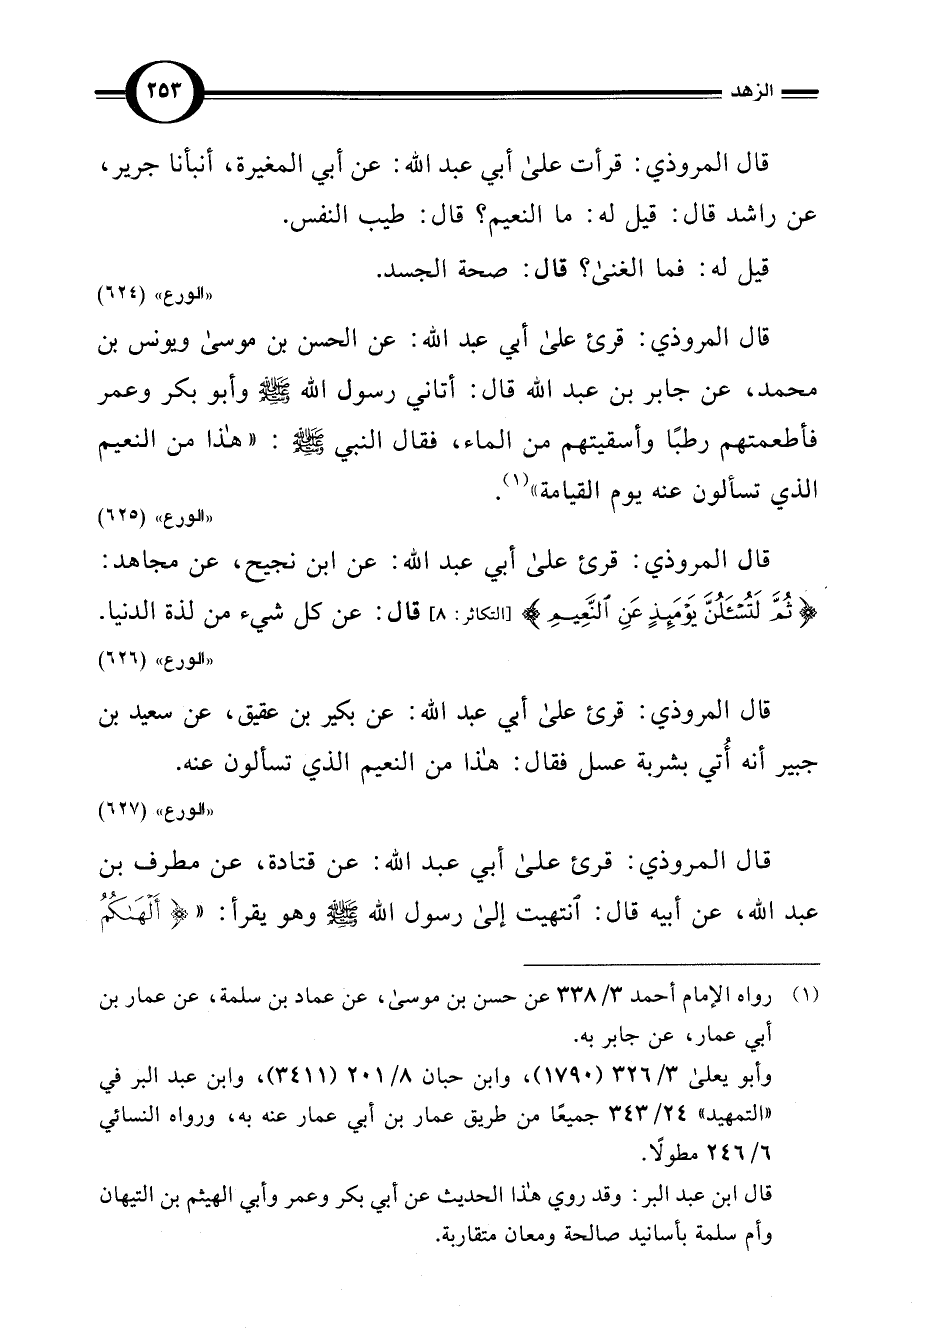 الزهد
٢٥٣
قال المروذي: قرأت علىٰ أبي عبد الله: عن أبي المغيرة، أنبأنا جرير،
عن راشد قال: قيل له: ما النعيم؟ قال: طيب النفس.
قيل له: فما الغنىٰ؟ قال: صحة الجسد.
«الورع» (٦٢٤)
قال المروذي: قرئ علىٰ أبي عبد الله: عن الحسن بن موسىٰ ويونس بن
محمد، عن جابر بن عبد الله قال: أتاني رسول الله ﷺ وأبو بكر وعمر
فأطعمتهم رطبًا وأسقيتهم من الماء، فقال النبي ﷺ : «هٰذا من النعيم
الذي تسألون عنه يوم القيامة»(١).
«الورع» (٦٢٥)
قال المروذي: قرئ علىٰ أبي عبد الله: عن ابن نجيح، عن مجاهد:
﴿ ثُمَّ لَتُسْـَٔلُنَّ يَوْمَئِذٍ عَنِ ٱلنَّعِيمِ ﴾ [التكاثر: ٨] قال: عن كل شيء من لذة الدنيا.
«الورع» (٦٢٦)
قال المروذي: قرئ علىٰ أبي عبد الله: عن بكير بن عقيق، عن سعيد بن
جبير أنه أُتي بشربة عسل فقال: هٰذا من النعيم الذي تسألون عنه.
«الورع» (٦٢٧)
قال المروذي: قرئ علىٰ أبي عبد الله: عن قتادة، عن مطرف بن
عبد الله، عن أبيه قال: ٱنتهيت إلىٰ رسول الله ﷺ وهو يقرأ: «﴿ أَلْهَىٰكُمُ
(١) رواه الإمام أحمد ٣/ ٣٣٨ عن حسن بن موسىٰ، عن عماد بن سلمة، عن عمار بن
أبي عمار، عن جابر به.
وأبو يعلىٰ ٣/ ٣٢٦ (١٧٩٠)، وابن حبان ٨/ ٢٠١ (٣٤١١)، وابن عبد البر في
«التمهيد» ٢٤/ ٣٤٣ جميعًا من طريق عمار بن أبي عمار عنه به، ورواه النسائي
٦/ ٢٤٦ مطولًا.
قال ابن عبد البر: وقد روي هٰذا الحديث عن أبي بكر وعمر وأبي الهيثم بن التيهان
وأم سلمة بأسانيد صالحة ومعان متقاربة.